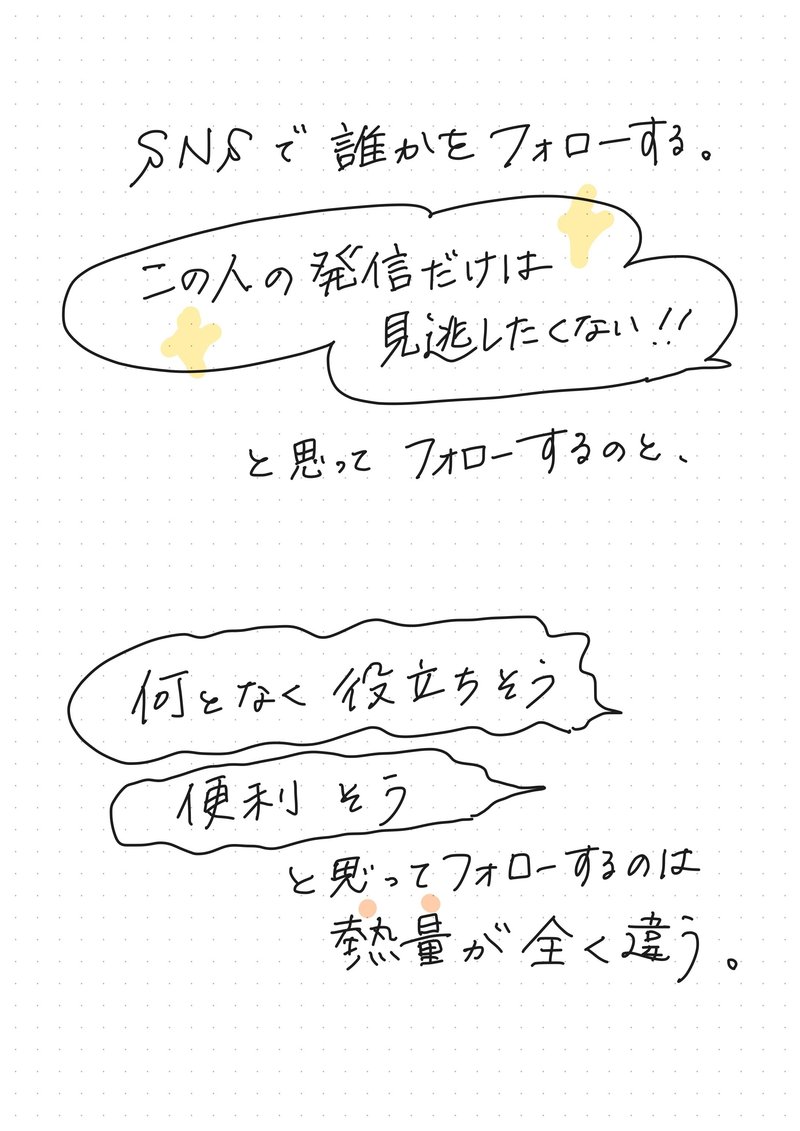 SNSで誰かをフォローする。
この人の発信だけは
見逃したくない!!
と思ってフォローするのと、
何となく役立ちそう
便利そう
と思ってフォローするのは
熱量が全く違う。